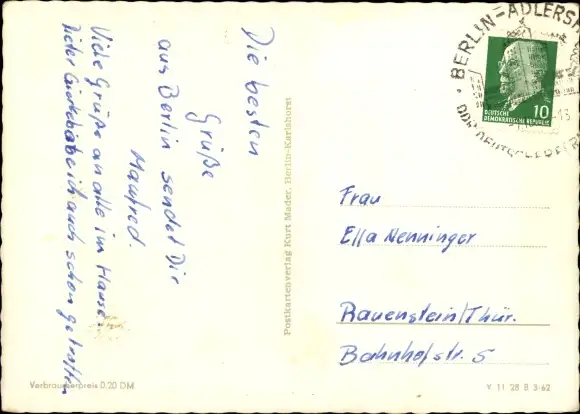 Die besten
Grüße
aus Berlin sendet Dir
Manfred.
Viele Grüße an alle im Hause.
Dieter habe ich auch schon getroffen
Postkartenverlag Kurt Mader, Berlin-Karlshorst
BERLIN-ADLERSH
10
DEUTSCHE
DEMOKRATISCHE REPUBLIK
Frau
Ella Nenninger
Rauenstein/Thür.
Bahnhofstr. 5
Verbraucherpreis 0.20 DM
V 11 28 B 3-62